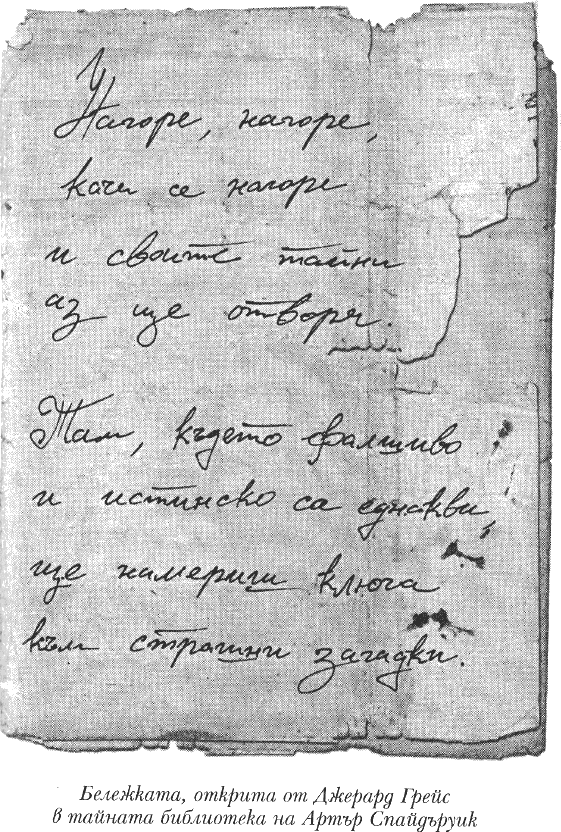 Нагоре, нагоре,
качи се нагоре
и своите тайни
аз ще отворя.
Там, където фалшиво
и истинско са еднакви,
ще намериш ключа
към страшни загадки.
Бележката, открита от Джерард Грейс
в тайната библиотека на Артър Спайдъруик